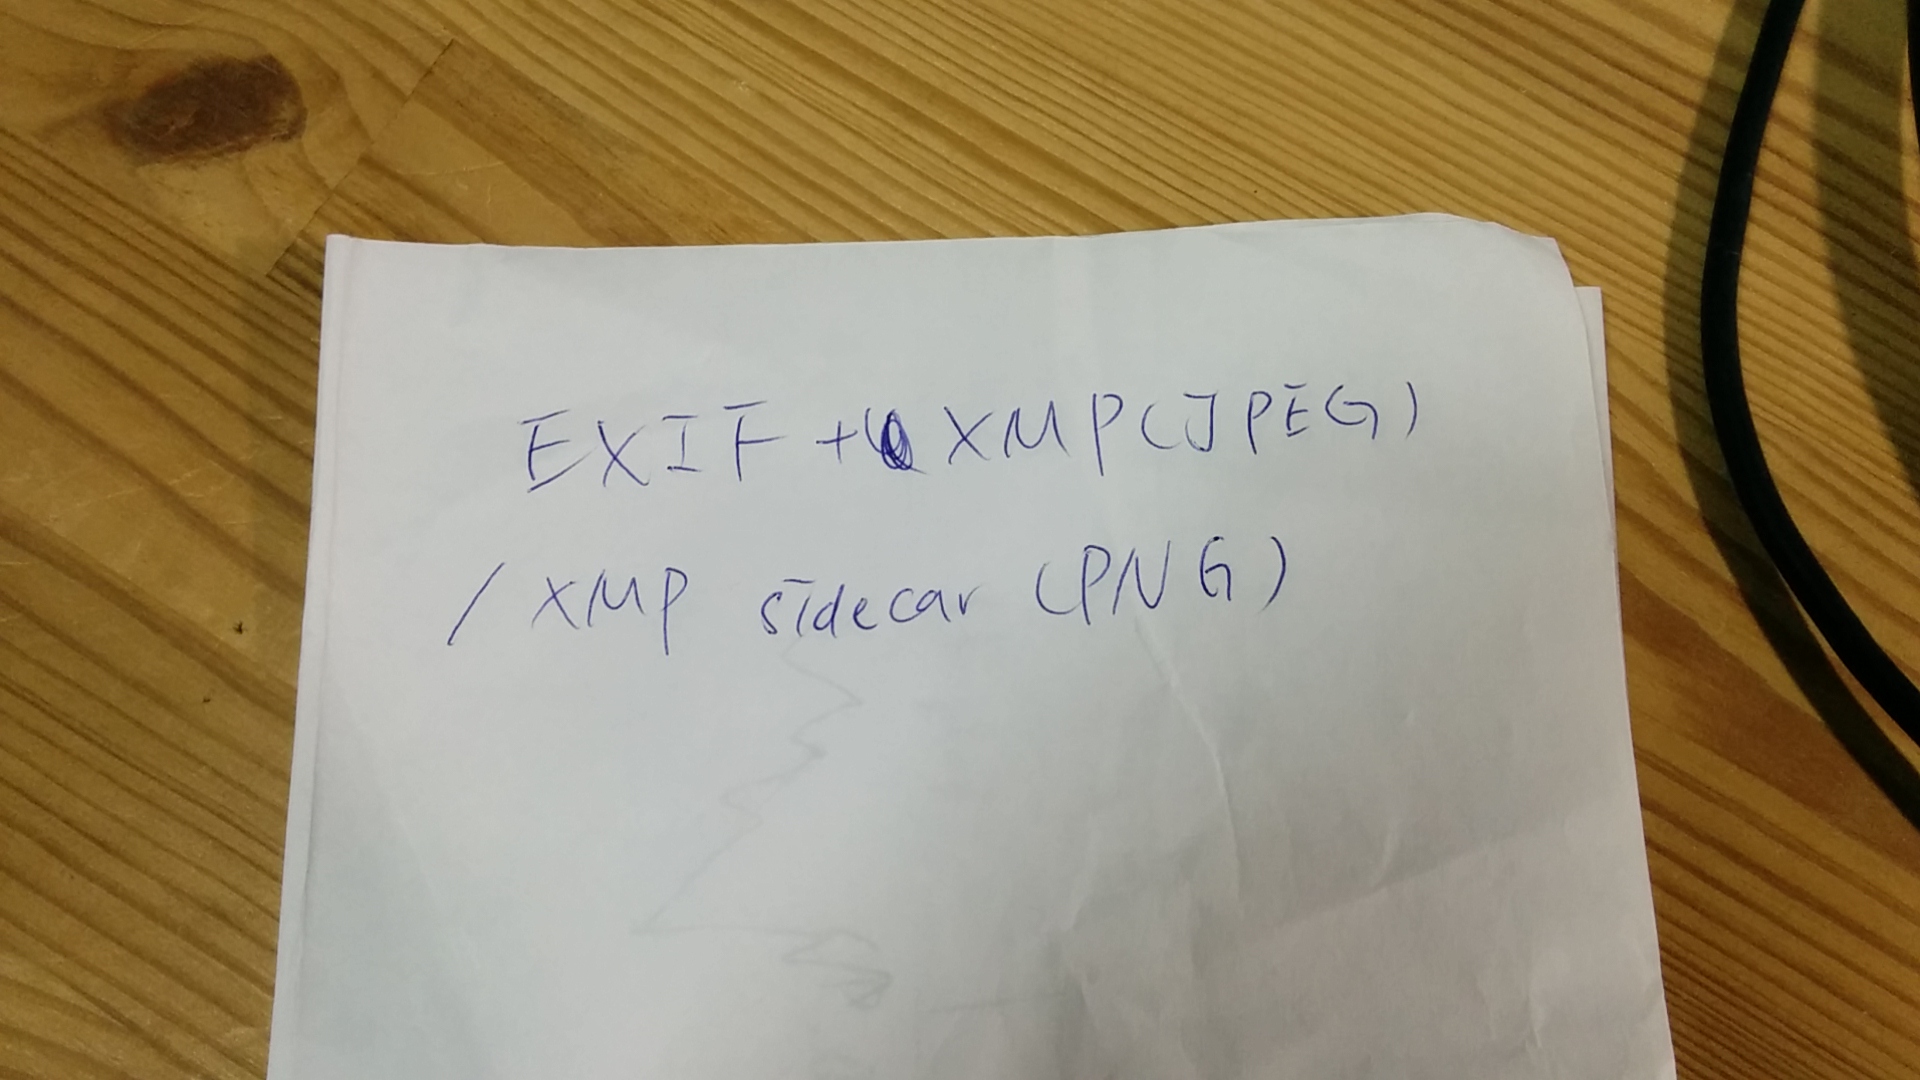 EXIF + XMP (JPEG)
/ XMP sidecar (PNG)